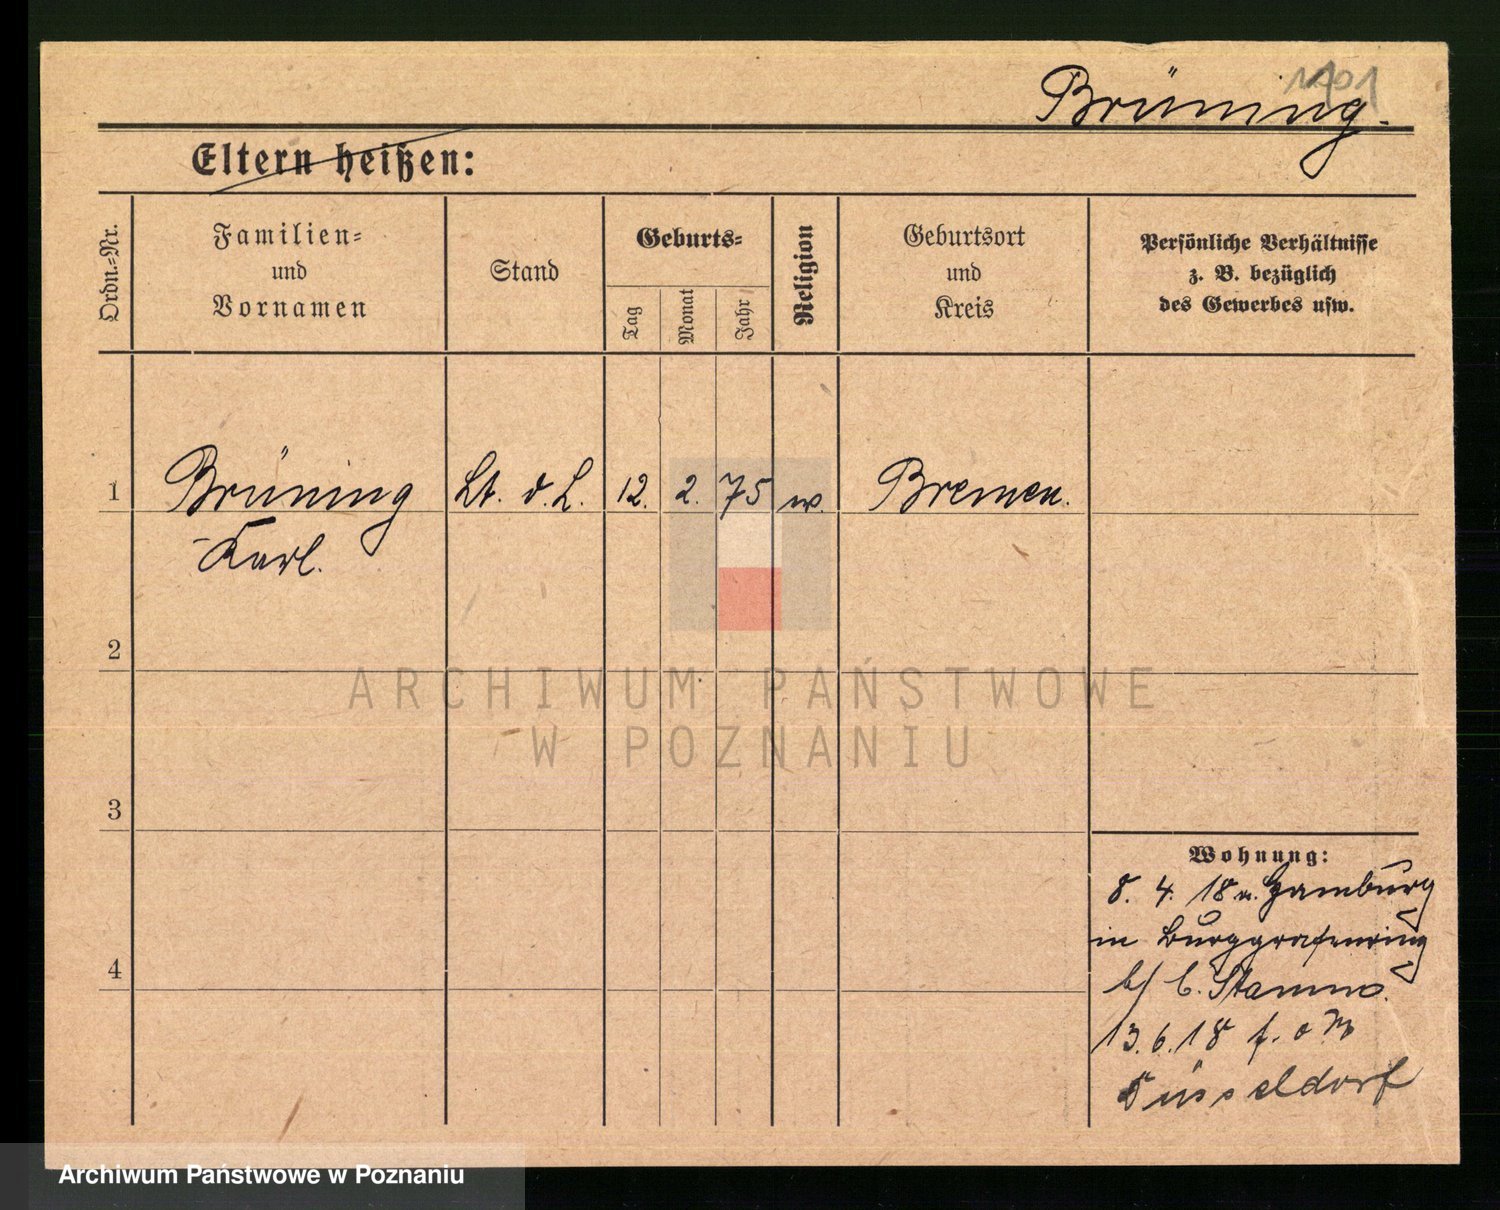 1401
Brüning.
Eltern heißen:
Ordn.-Nr.
Familien- und Vornamen
Stand
Geburts-
Tag
Monat
Jahr
Religion
Geburtsort und Kreis
Persönliche Verhältnisse
z. B. bezüglich
des Gewerbes usw.
1 Brüning Lt. d. L. 12. 2. 75 ev. Bremen.
Karl.
2
3
4
Wohnung:
8. 4. 18 v. Hamburg
in Burggrafenring
b/ C. Stamm.
13. 6. 18 f. o M
Düsseldorf
ARCHIWUM PAŃSTWOWE
W POZNANIU
Archiwum Państwowe w Poznaniu